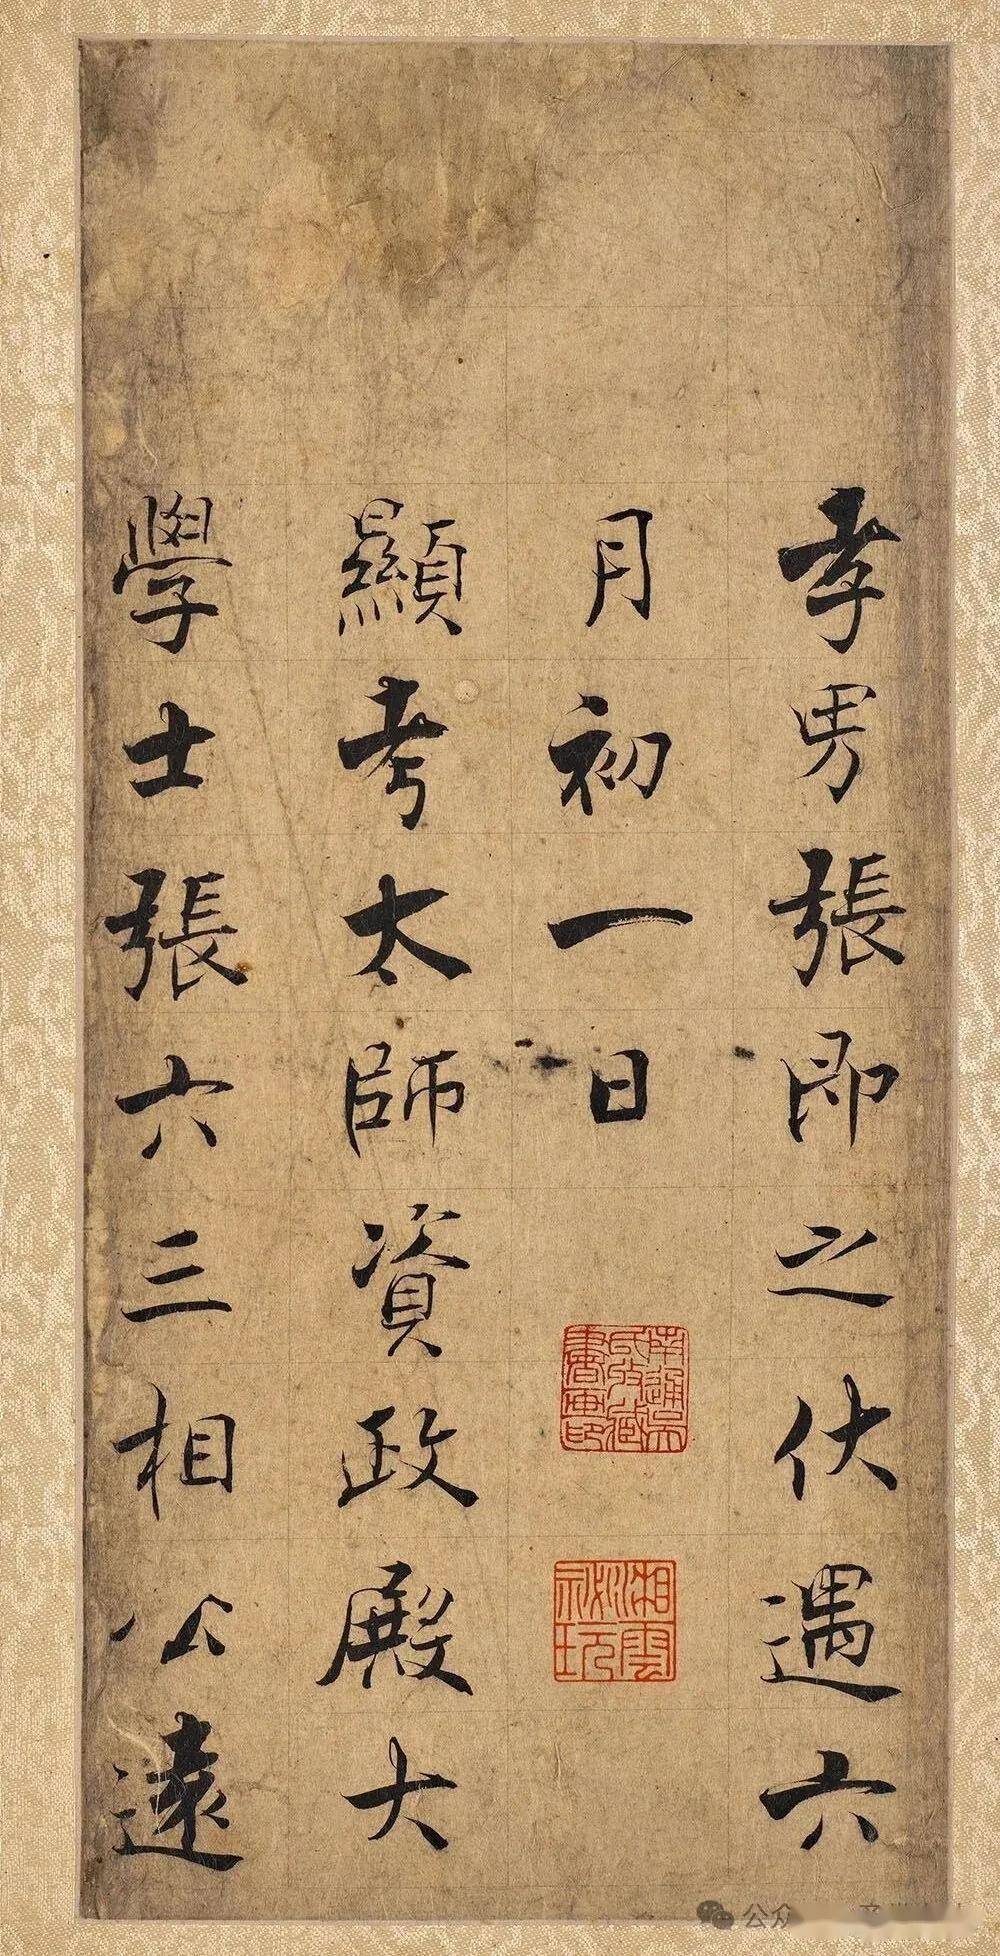 孝男張即之伏遇六
月初一日
顯考太師資政殿大
學士張六三相公遠
湘雲秘玩
公众